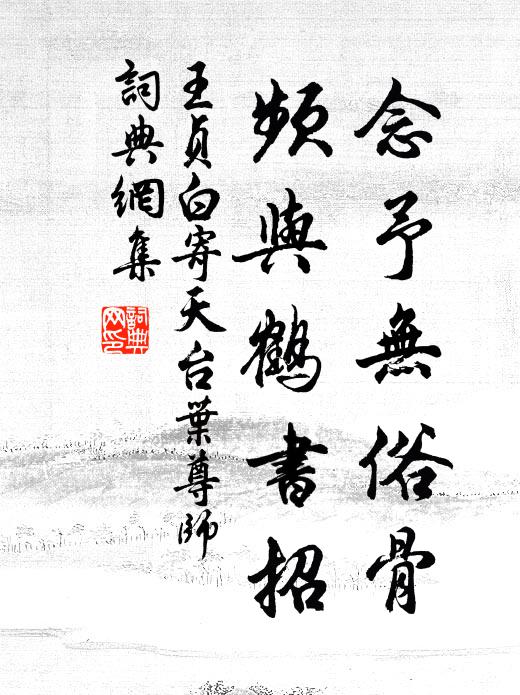 念予無俗骨
頻與鶴書招
王貞白寄天台葉尊師
詞典網集
詞典网印